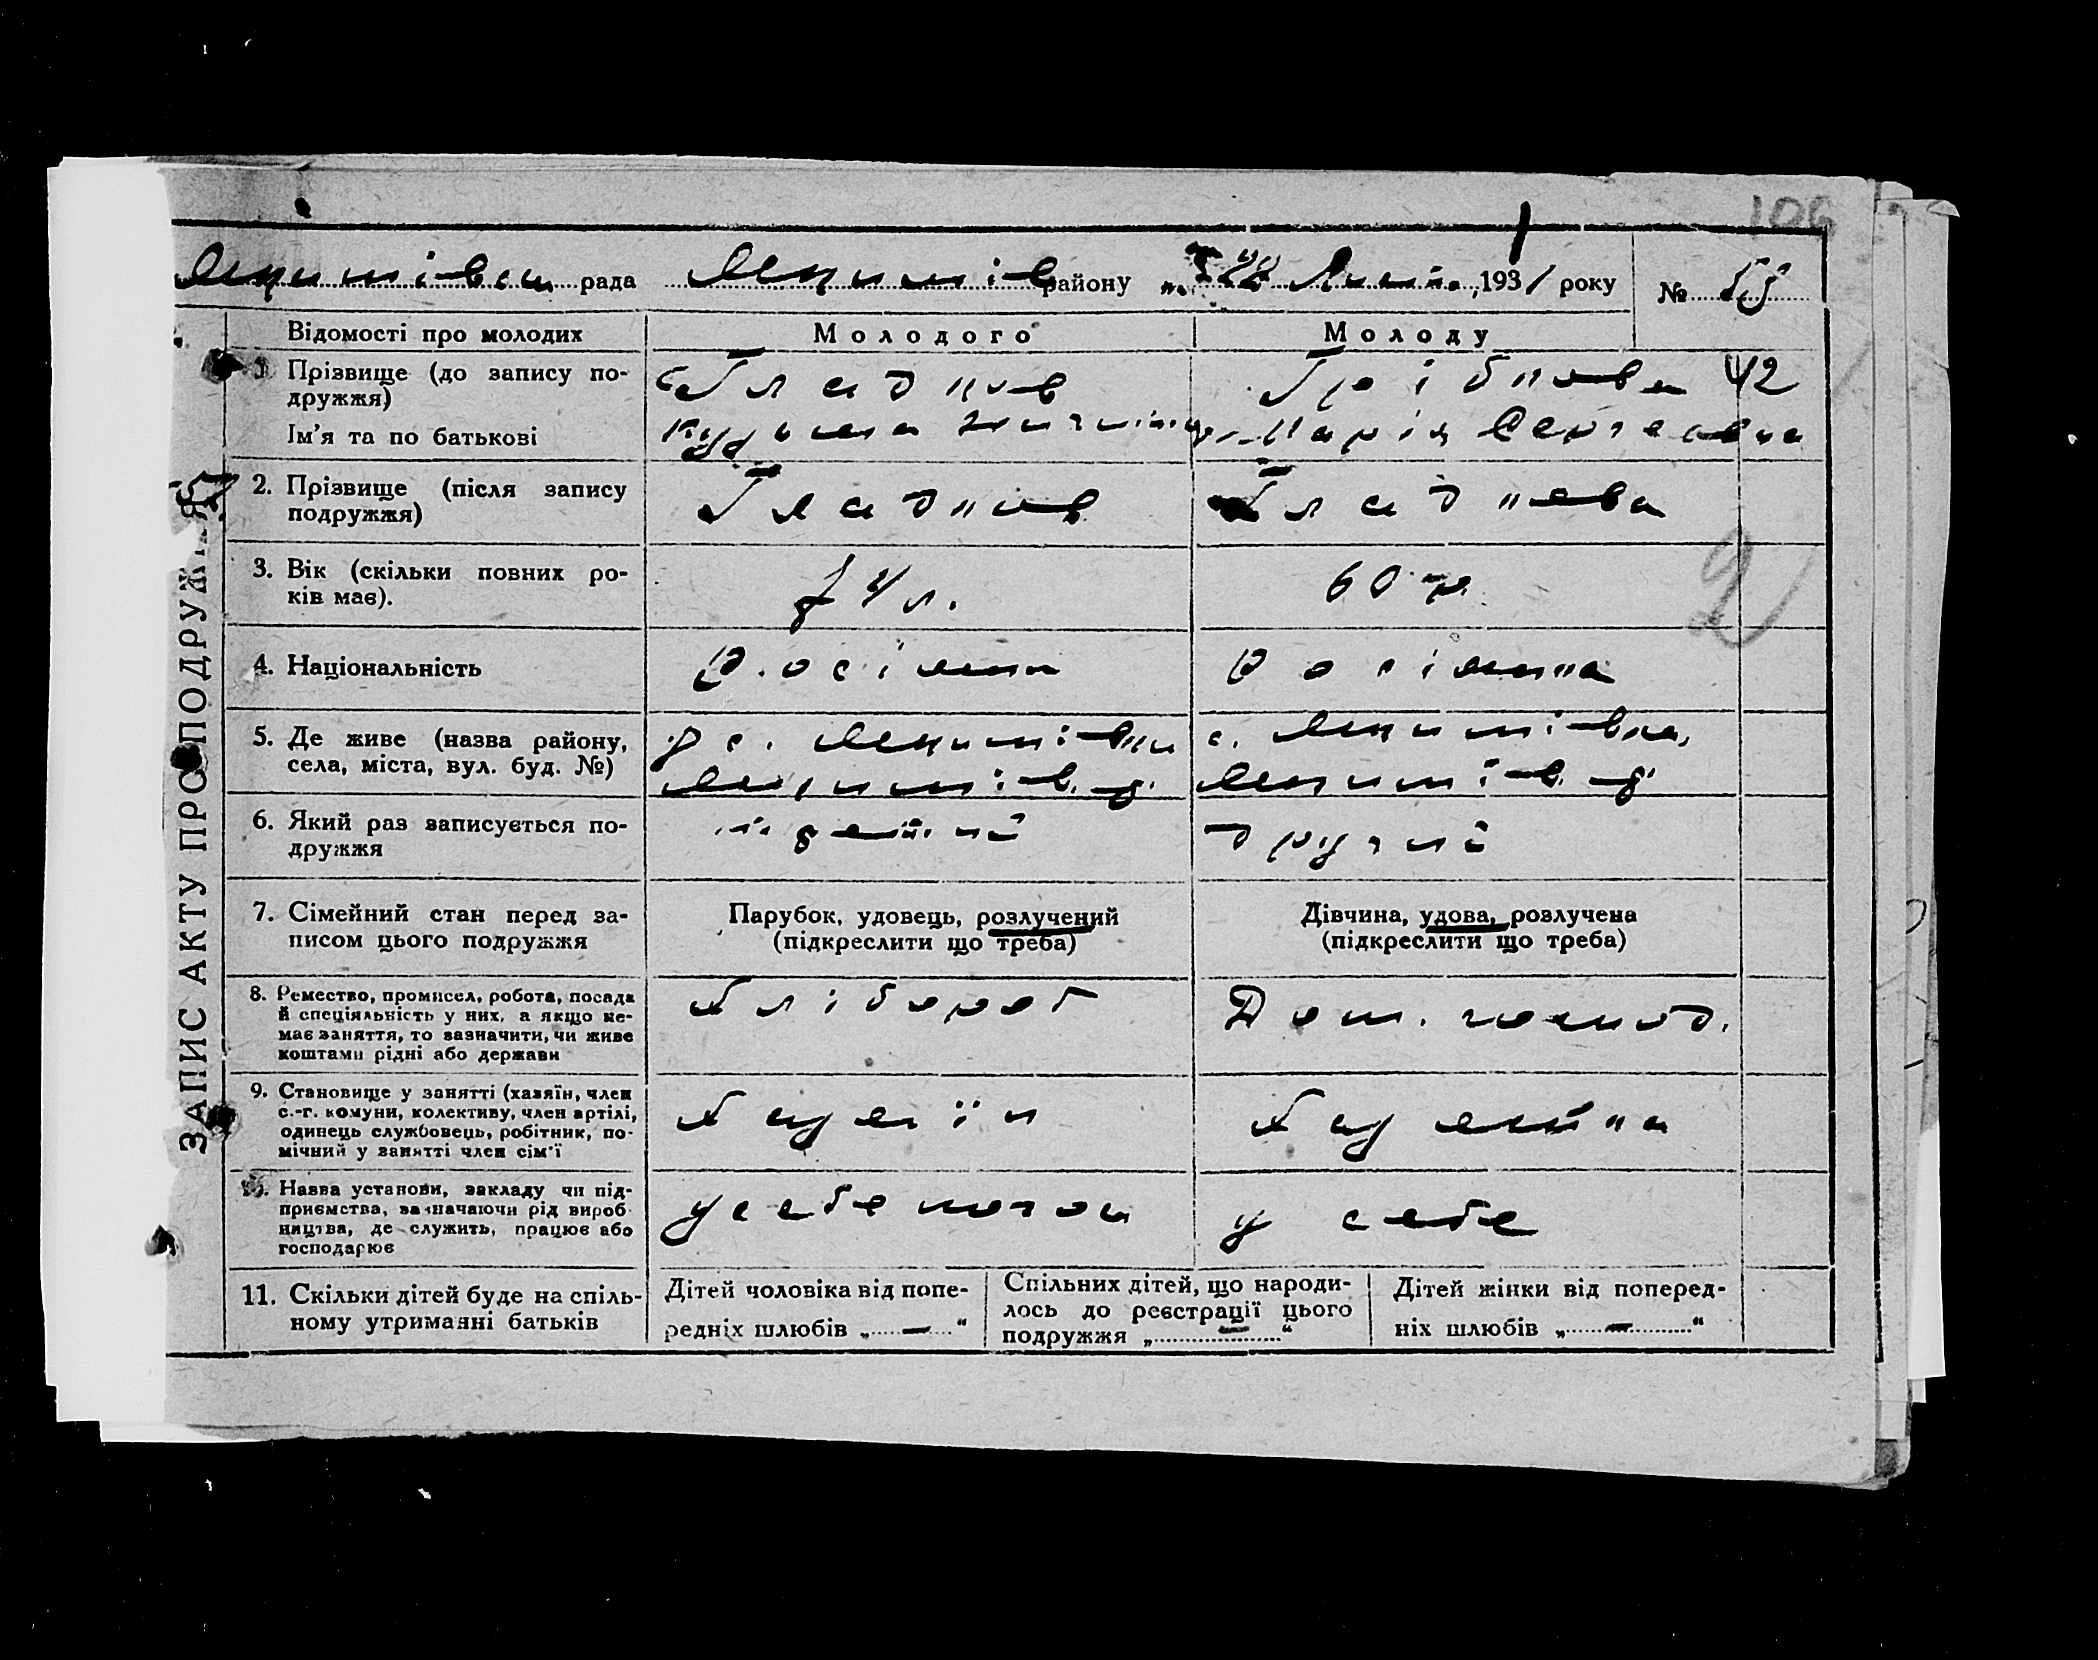 106
рада району 1931 року №
Відомості про молодих Молодого Молоду
1. Прізвище (до запису по- Гладков Грібкова 42
дружжя)
Ім'я та по батькові Марія Сергеевна
2. Прізвище (після запису Гладков Гладкова
подружжя)
3. Вік (скільки повних ро- 74 л. 60 р.
ків має).
4. Національність Росіянин Росіянка
5. Де живе (назва району,
села, міста, вул. буд. №)
6. Який раз записується по- третій другий
дружжя
7. Сімейний стан перед за- Парубок, удовець, розлучений Дівчина, удова, розлучена
писом цього подружжя (підкреслити що треба) (підкреслити що треба)
8. Ремество, промисел, робота, посада Хлібороб Дом. господ.
й спеціяльність у них, а якщо не-
має заняття, то зазначити, чи живе
коштами рідні або держави
9. Становище у занятті (хазяїн, член Хазяїн Хазяйка
с.-г. комуни, колективу, член артілі,
одинець службовець, робітник, по-
мічний у занятті член сім'ї
10. Назва установи, закладу чи під- у себе у себе
приємства, зазначаючи рід вироб-
ництва, де служить, працює або
господарює
11. Скільки дітей буде на спіль- Дітей чоловіка від попе- Спільних дітей, що народи- Дітей жінки від поперед-
ному утриманні батьків редніх шлюбів „ — “ лось до реєстрації цього ніх шлюбів „ — “
подружжя „ — “
ЗАПИС АКТУ ПРО ПОДРУЖЖЯ
2